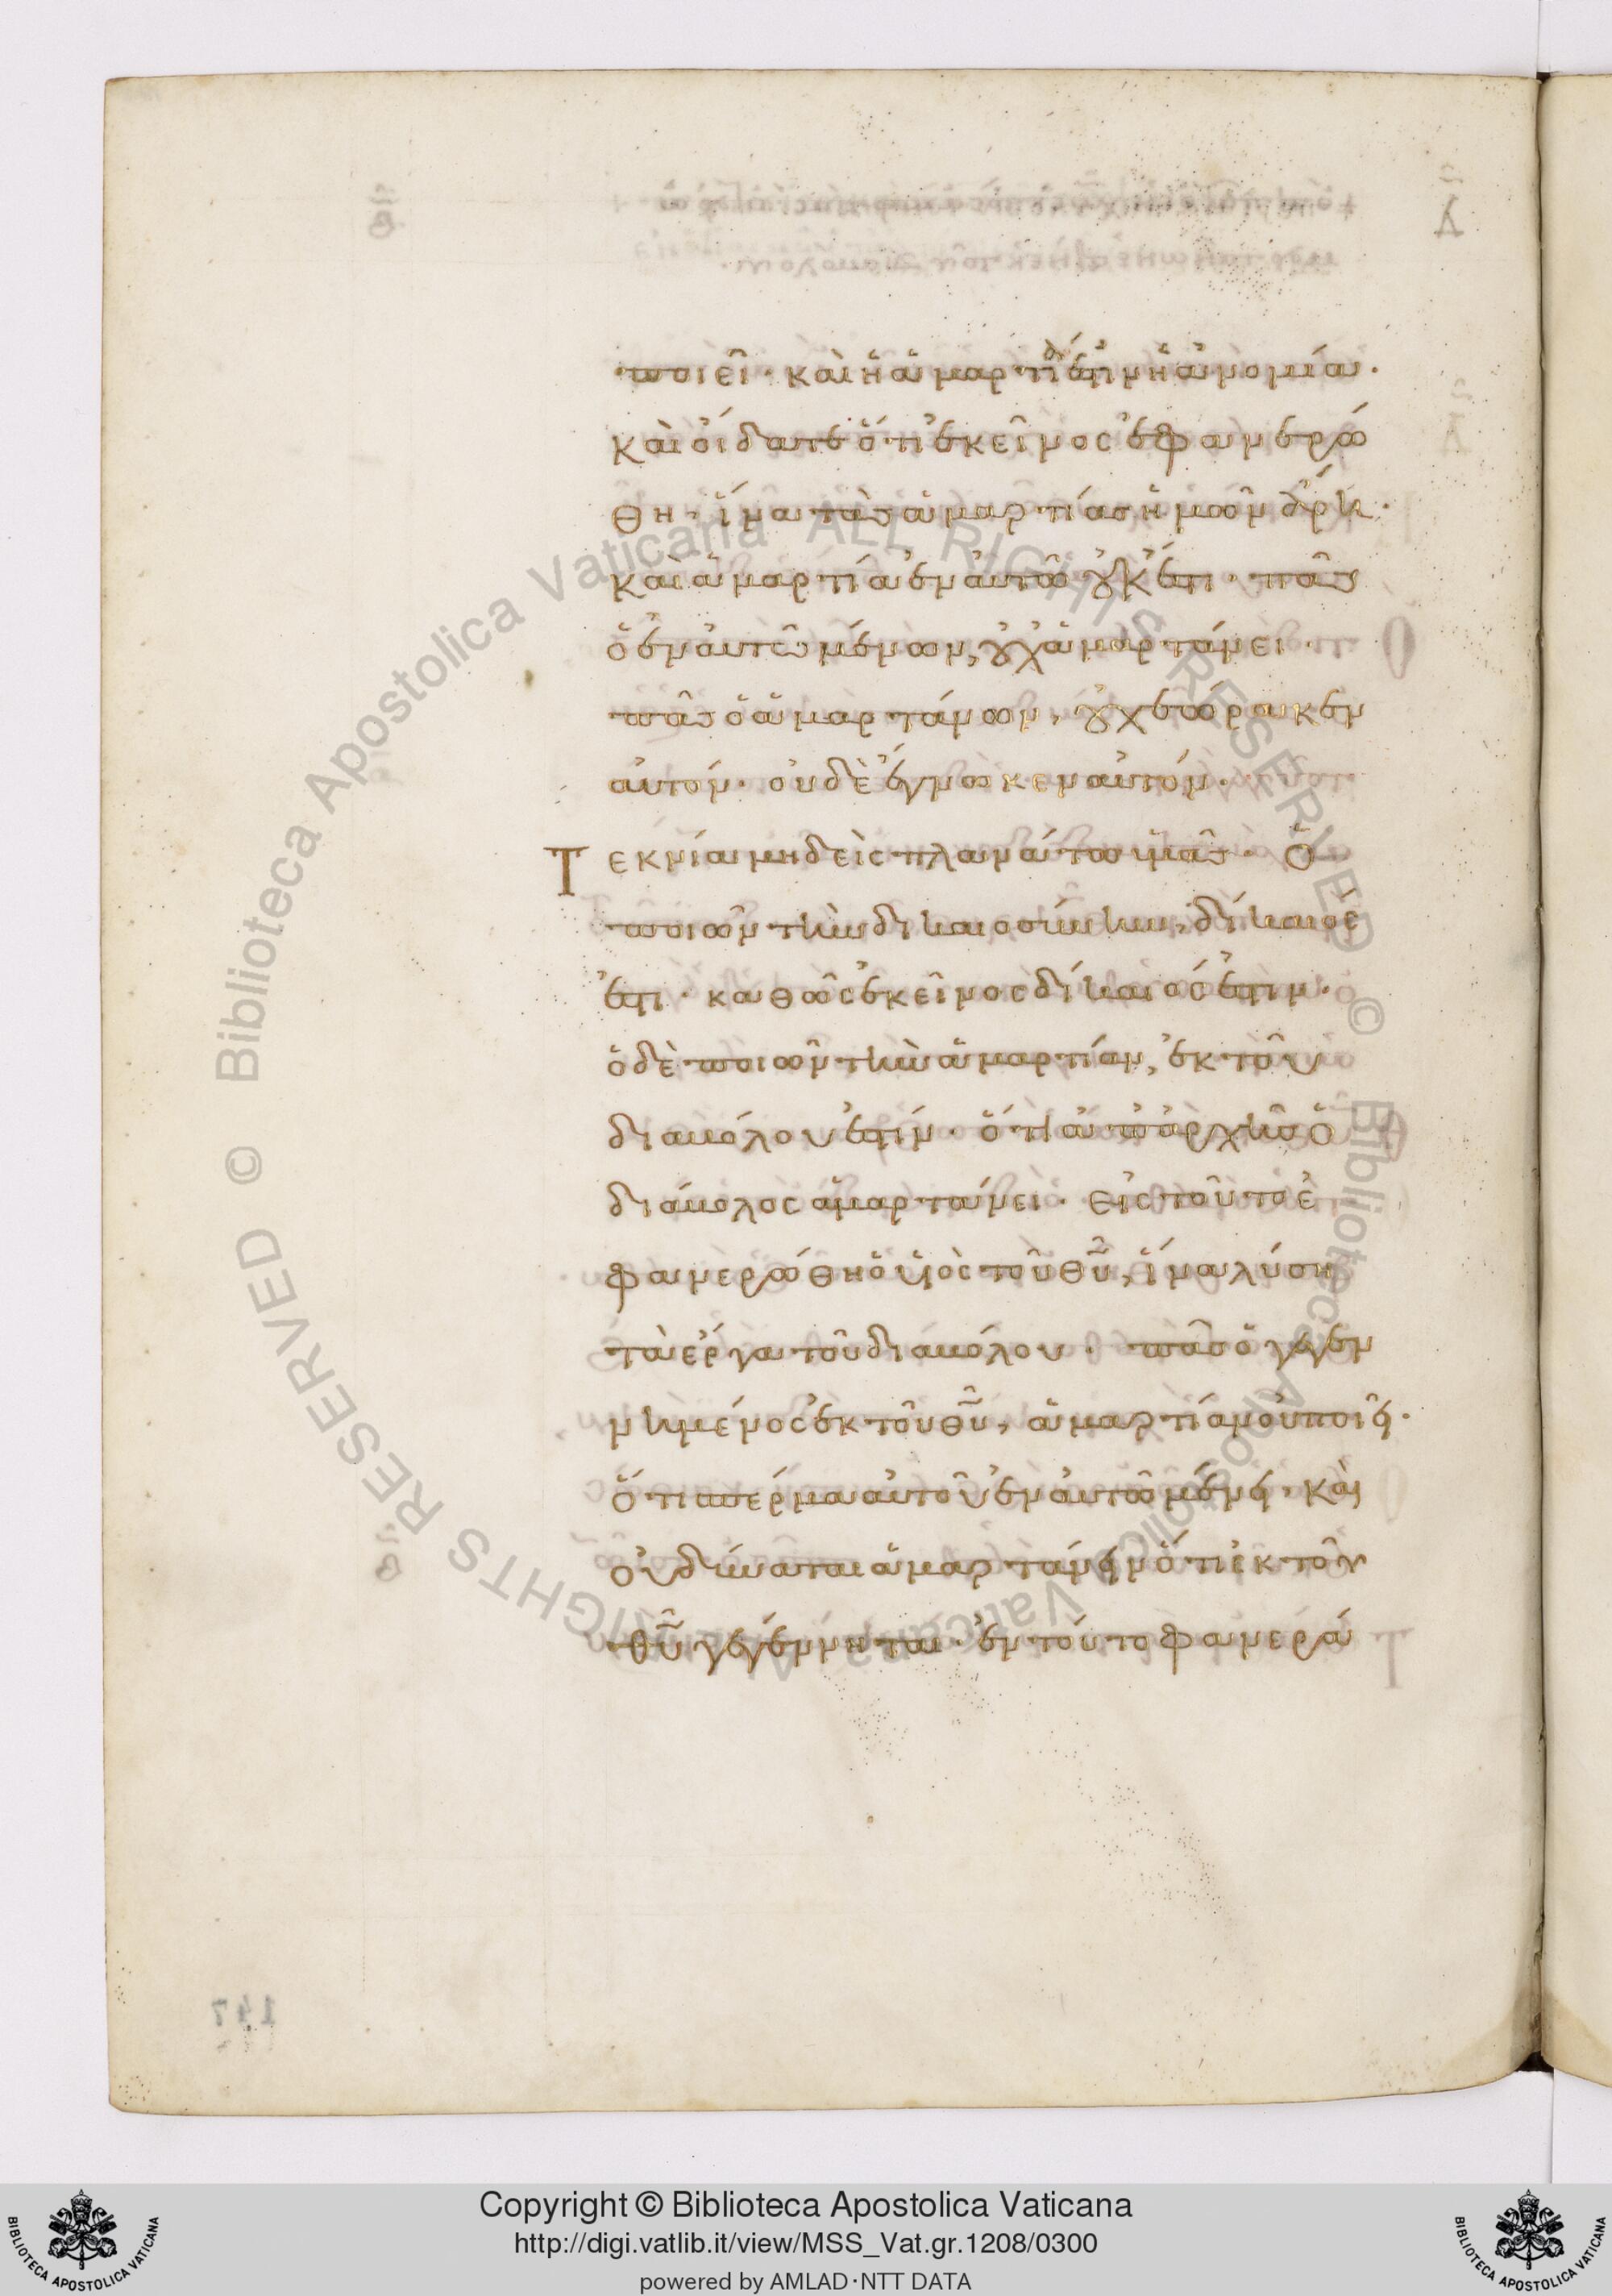 ποιεῖ· καὶ ἡ ἁμαρτία ἐστὶν ἡ ἀνομία·
καὶ οἴδατε ὅτι ἐκεῖνος ἐφανερώ
θη, ἵνα τὰς ἁμαρτίας ἡμῶν ἄρη·
καὶ ἁμαρτία ἐν αὐτῶ οὐκ ἔστι· πᾶς
ὁ ἐν αὐτῶ μένων, οὐχ ἁμαρτάνει·
πᾶς ὁ ἁμαρτάνων, οὐχ ἑώρακεν
αὐτόν· οὐδὲ ἔγνωκεν αὐτόν·
Τεκνία μηδεὶς πλανάτω ὑμᾶς· ὁ
ποιῶν τὴν δικαιοσύνην, δίκαιός
ἐστι· καθὼς ἐκεῖνος δίκαιός ἐστιν·
ὁ δὲ ποιῶν τὴν ἁμαρτίαν, ἐκ τοῦ
διαβόλου ἐστίν· ὅτι ἀπ ἀρχῆς ὁ
διάβολος ἁμαρτάνει· εἰς τοῦτο ἐ
φανερώθη ὁ υἱὸς τοῦ θυ, ἵνα λύση
τὰ ἔργα τοῦ διαβόλου· πᾶς ὁ γεγεν
νημένος ἐκ τοῦ θυ, ἁμαρτίαν οὐ ποιεῖ·
ὅτι σπέρμα αὐτοῦ ἐν αὐτῶ μένει, καὶ
οὐ δύναται ἁμαρτάνειν ὅτι ἐκ τοῦ
θυ γεγέννηται· ἐν τούτο φανερά
Copyright © Biblioteca Apostolica Vaticana
http://digi.vatlib.it/view/MSS_Vat.gr.1208/0300
powered by AMLAD·NTT DATA
BIBLIOTECA APOSTOLICA VATICANA
BIBLIOTECA APOSTOLICA VATICANA
© Biblioteca Apostolica Vaticana ALL RIGHTS RESERVED © Biblioteca Apostolica Vaticana ALL RIGHTS RESERVED